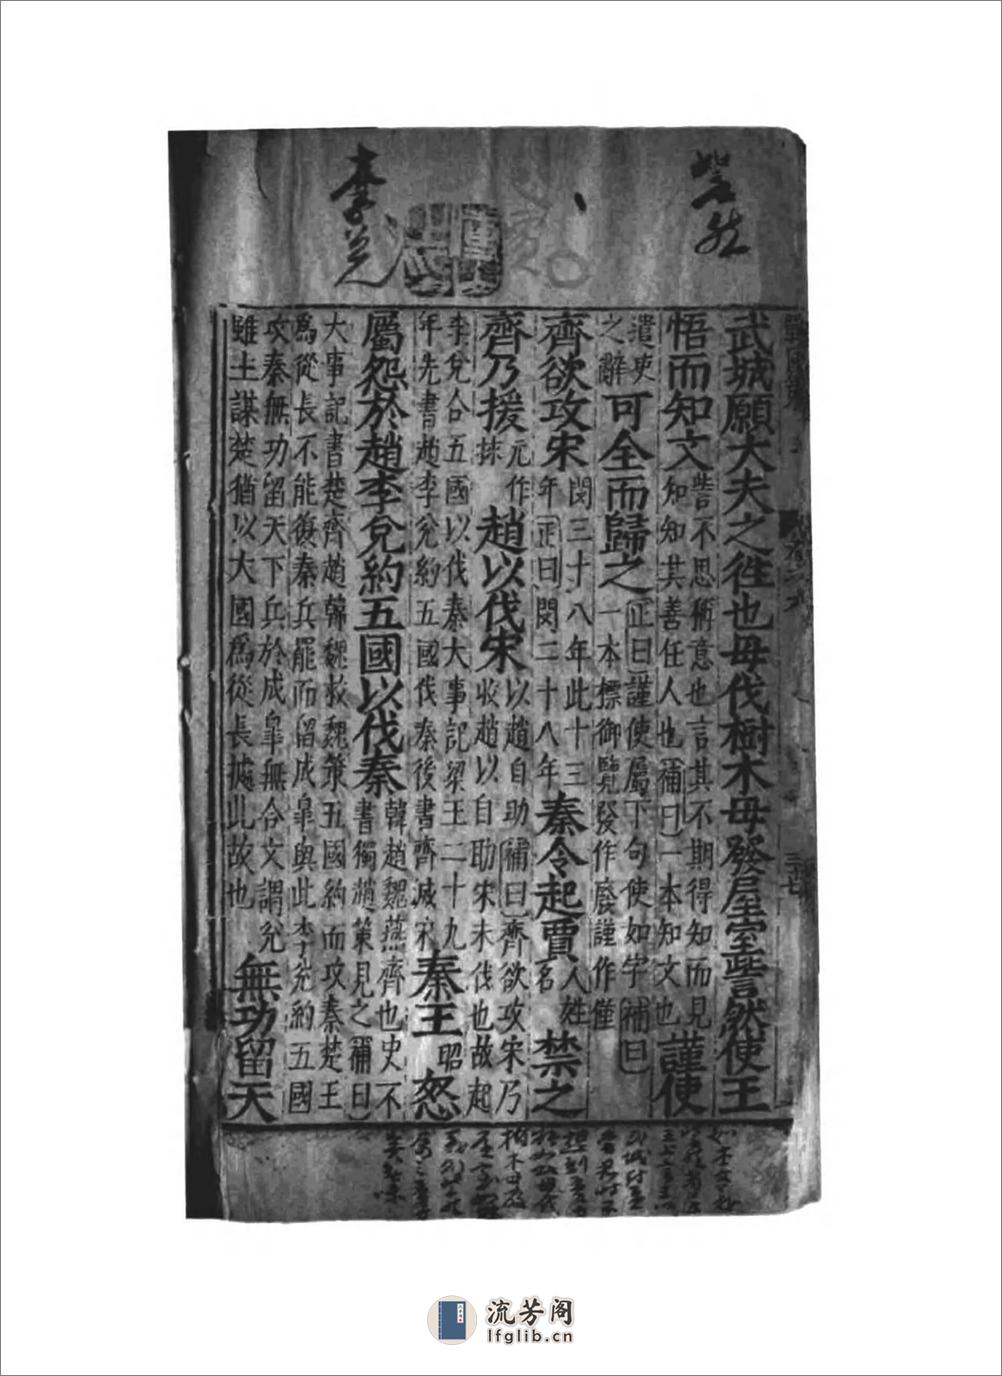 訾然
李兌
戰國策
三十七
武城願大夫之徃也毋伐樹木毋發屋室訾然使王
悟而知文
訾不思稱意也言其不期得知而見
知知其善任人也補曰一本知文也
謹使
遣吏
之辭
可全而歸之
正曰謹使屬下句使如字補曰
一本標御覽發作廢謹作僅
齊欲攻宋
閔三十八年此十三
年正曰閔二十八年
秦令起賈
人姓
名
禁之
齊乃援
元作
捄
趙以伐宋
以趙自助補曰齊欲攻宋乃
收趙以自助宋未伐也故起
李兌合五國以伐秦大事記梁王二十九
年先書趙李兌約五國伐秦後書齊滅宋
秦王
昭
怒
屬怨於趙李兌約五國以伐秦
韓趙魏燕齊也史不
書獨趙策見之補曰
大事記書楚齊趙韓魏救魏策五國約而攻秦楚王
為從長不能復秦兵罷而留成臯與此李兌約五國
攻秦無功留天下兵於成臯無合文謂兌
雖主謀楚猶以大國為從長據此故也
無功留天
流芳阁
lfglib.cn